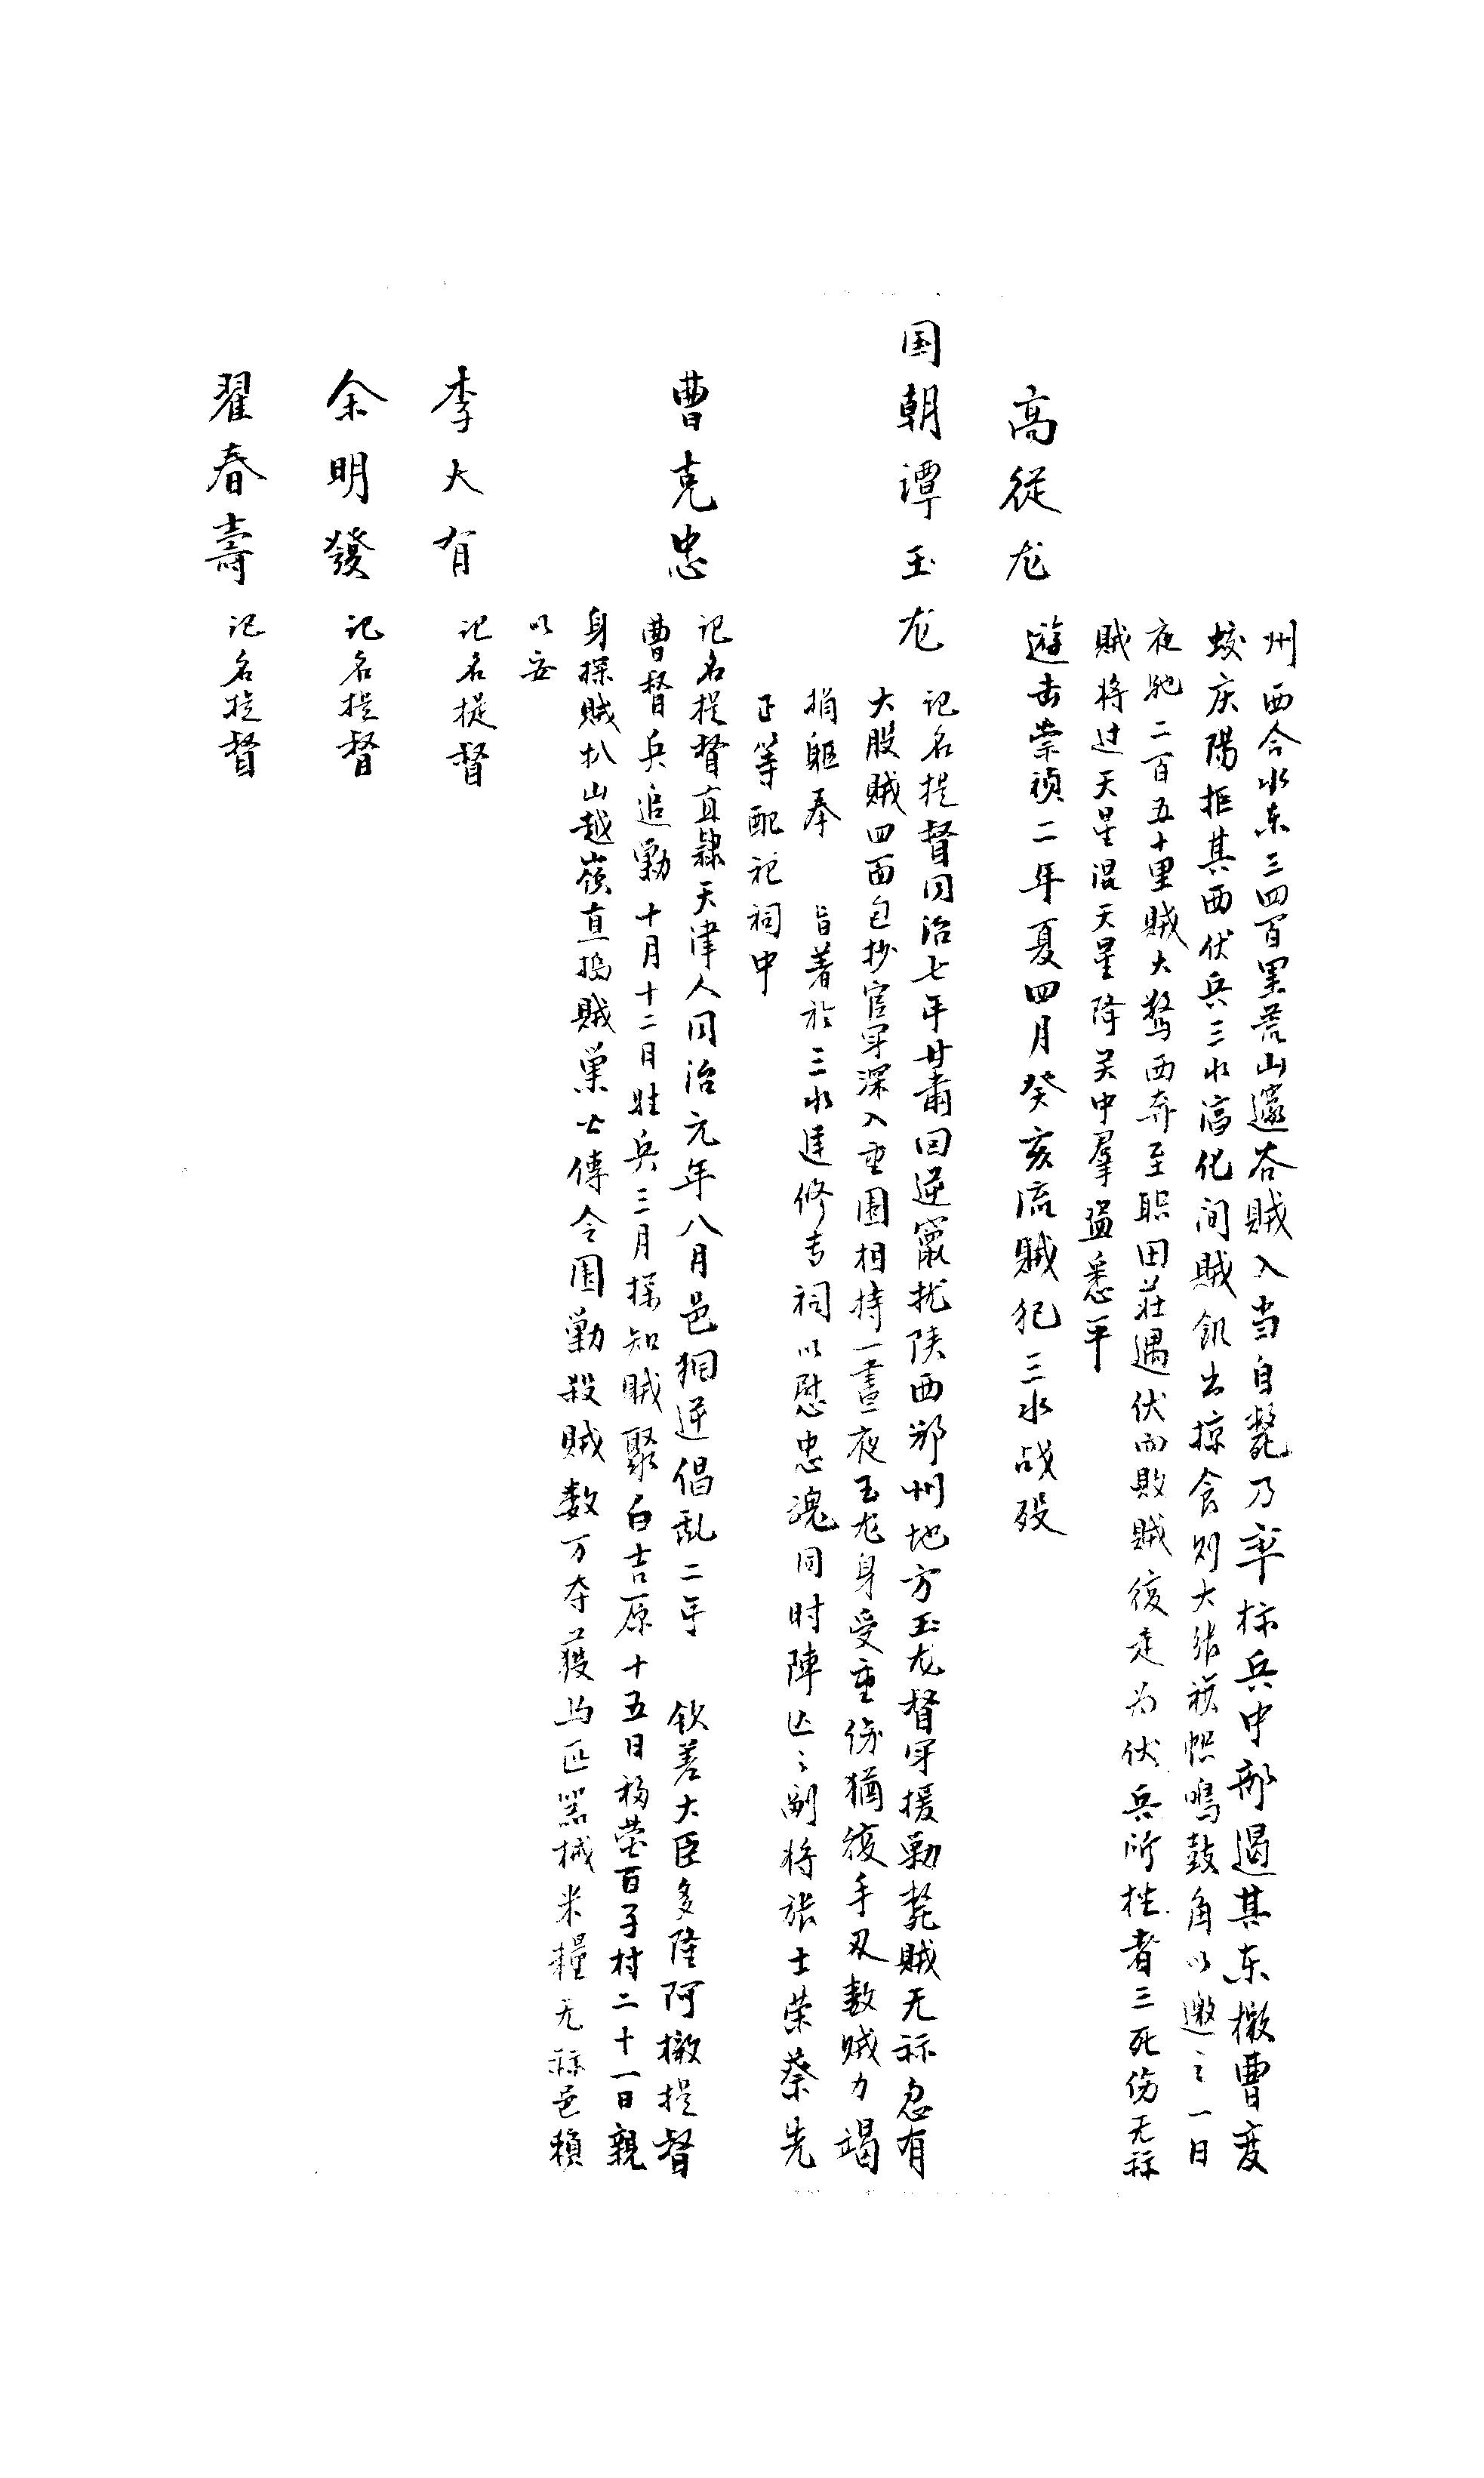 州西合水东三四百里荒山邃谷贼入当自毙乃率标兵中部遏其东檄曹变
蛟庆陽拒其西伏兵三水淳化间贼飢出掠食则大张旗帜鸣鼓角以邀之一日
夜驰二百五十里贼大驁西奔至职田莊遇伏而败贼復走为伏兵所挫者三死伤无祘
贼将过天星混天星降关中羣盗悉平
高從龙 遊击崇祯二年夏四月癸亥流贼犯三水战殁
国朝谭玉龙 记名提督同治七年甘肅回逆竄扰陕西邠州地方玉龙督军援勦毙贼无祘忽有
大股贼四面包抄官军深入重圍相持一晝夜玉龙身受重伤猶復手刃数贼力竭
捐躯奉 旨著於三水建修专祠以慰忠魂同时陣亡之副将张士荣蔡先
正等配祀祠中
曹克忠 记名提督直隸天津人同治元年八月邑狪逆倡乱二年 欽差大臣多隆阿檄提督
曹督兵追勦十月十二日駐兵三月探知贼聚白吉原十五日移营百子村二十一日親
身探贼扒山越嶺直搗贼巢亡傳令围勦殺贼数万夺获马匹器械米糧无祘邑赖
以安
李大有 记名提督
余明發 记名提督
翟春壽 记名提督